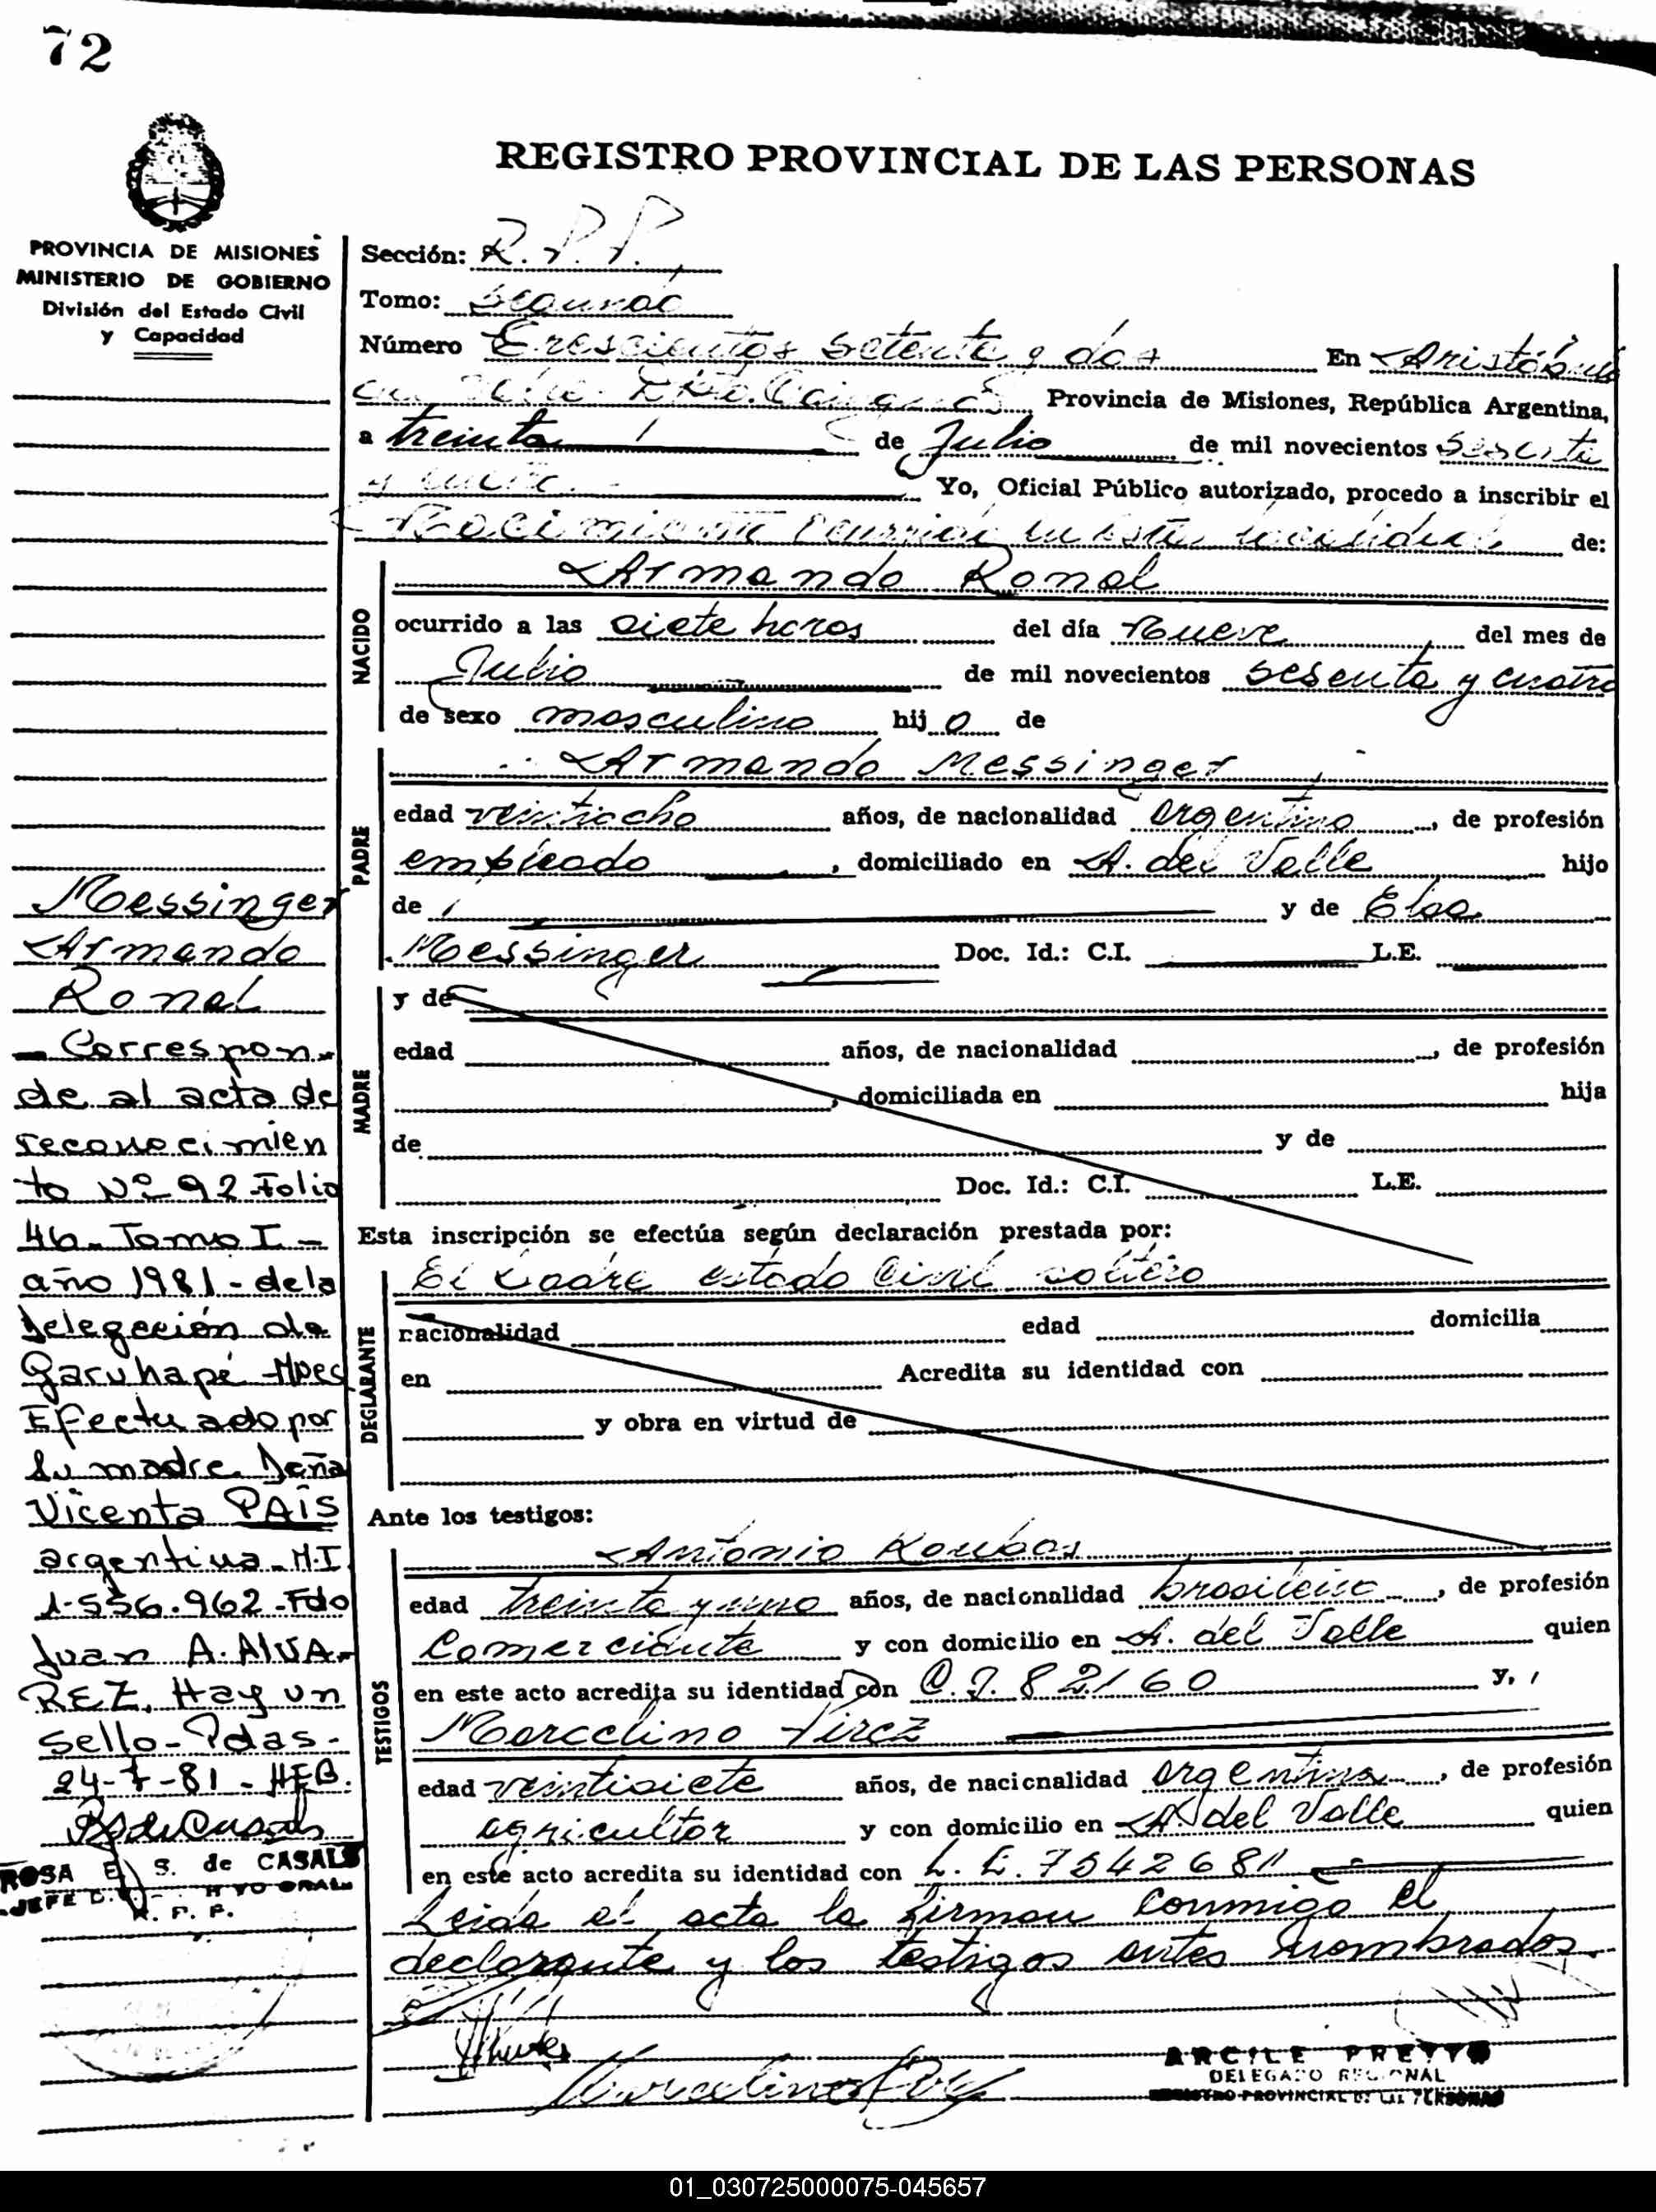 72
REGISTRO PROVINCIAL DE LAS PERSONAS
PROVINCIA DE MISIONES
MINISTERIO DE GOBIERNO
División del Estado Civil
y Capacidad
Sección: R. P. P.
Tomo: Segundo
Número Trescientos setenta y dos En Aristóbulo
del Valle Dpto. Cainguás Provincia de Misiones, República Argentina,
a treinta de Julio de mil novecientos sesenta
y cuatro Yo, Oficial Público autorizado, procedo a inscribir el
Nacimiento ocurrido en esta localidad de:
NACIDO
Armando Ronal
ocurrido a las siete horas del día Nueve del mes de
Julio de mil novecientos sesenta y cuatro
de sexo masculino hijo de
PADRE
Armando Messinger
edad veintiocho años, de nacionalidad argentino, de profesión
empleado, domiciliado en A. del Valle hijo
de y de Elsa
Messinger Doc. Id.: C.I. L.E.
MADRE
y de
edad años, de nacionalidad , de profesión
, domiciliada en hija
de y de
Doc. Id.: C.I. L.E.
Esta inscripción se efectúa según declaración prestada por:
DECLARANTE
El Padre estado Civil soltero
nacionalidad edad domicilia
en Acredita su identidad con
y obra en virtud de
Ante los testigos:
TESTIGOS
Antonio
edad treinta y uno años, de nacionalidad brasileiro, de profesión
Comerciante y con domicilio en A. del Valle quien
en este acto acredita su identidad con C.I. 82160 y,
Marcelino
edad veintisiete años, de nacionalidad argentino, de profesión
agricultor y con domicilio en A. del Valle quien
en este acto acredita su identidad con L. E.
Leida el acta la firman conmigo el
declarante y los testigos antes nombrados.
ARCILE PREYTO
DELEGADO REGIONAL
REGISTRO PROVINCIAL DE LAS PERSONAS
Messinger
Armando
Ronal
- Correspon-
de al acta de
reconocimien
to Nº 92 Folio
46- Tomo I -
año 1981 - de la
Delegación de
Garuhapé -Mnes
Efectuado por
su madre Doña
Vicenta PAIS
argentina - M.I
1-556.962 - Fdo
Juan A. ALVA-
REZ. Hay un
sello - Pdas.
24-7-81 - HEB.
ROSA E. S. de CASALS
R. P. P.
01_030725000075-045657